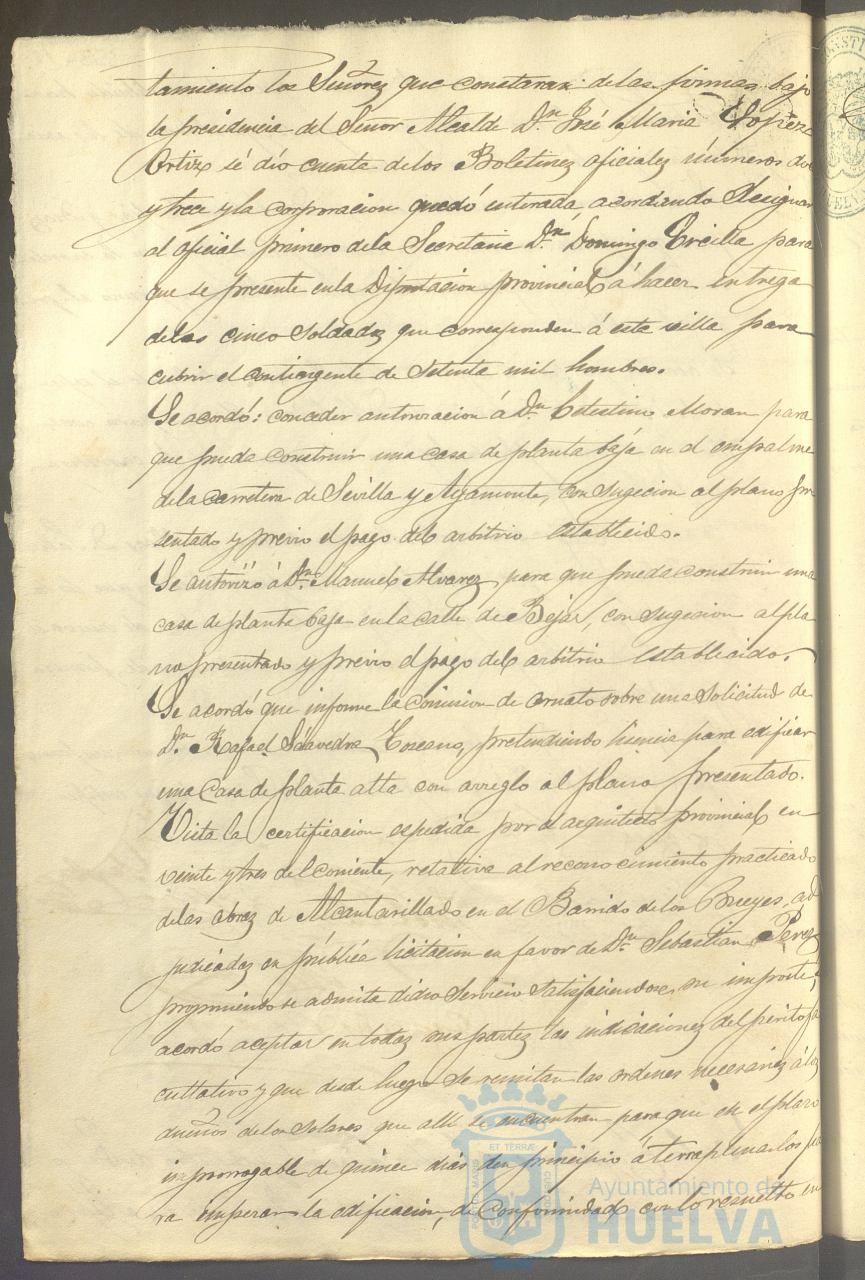 tamiento los Señorez que constaran de las firmas, bajo
la presidencia del Señor Alcalde Dn. José Maria Lopez
Ortiz sé dió cuenta de los Boletinez oficialez números doce
y trece y la corporacion quedó enterada acordando designar
al oficial primero de la Secretaria Dn. Domingo Ercilla para
que se presente en la Diputacion provincial á hacer entrega
de los cinco soldadoz que corresponden á esta villa para
cubrir el contingente de Setenta mil hombres.
Se acordó: conceder autorizacion á Dn. Celestino Moran para
que pueda construir una casa de planta baja en el empalme
de la carretera de Sevilla y Ayamonte, con sugecion al plano pre
sentado y previo el pago del arbitrio establecido.
Se autorizó á Dn. Manuel Alvarez para que pueda construir una
casa de planta baja en la calle de Bejar, con sugecion al pla
no presentado y previo el pago del arbitrio establecido.
Se acordó que informe la comision de ornato sobre una Solicitud de
Dn. Rafael Saavedra Toscano, pretendiendo licencia para edificar
una Casa de planta alta con arreglo al plano presentado.
Vista la certificacion espedida por el arquitecto provincial en
veinte y tres del corriente, relativa al reconocimiento practicado
de las obraz de Alcantarillado en el Barrido de los Bueyes, ad
judicadaz en pública licitacion en favor de Dn. Sebastian Perez
proponiendo se admita dicho Servicio satisfaciendose su importe, se
acordó aceptar en todaz sus partez las indicaciones del perito fa
cultativo y que desde luego se remitan las ordenes necesariaz á los
dueños de los Solares que allí se encuentran para que en el plazo
improrrogable de quince dias den principio á terraplenarlos pa
ra empezar la edificacion, de conformidad con lo resuelto en
ET TERRÆ
Ayuntamiento de
HUELVA